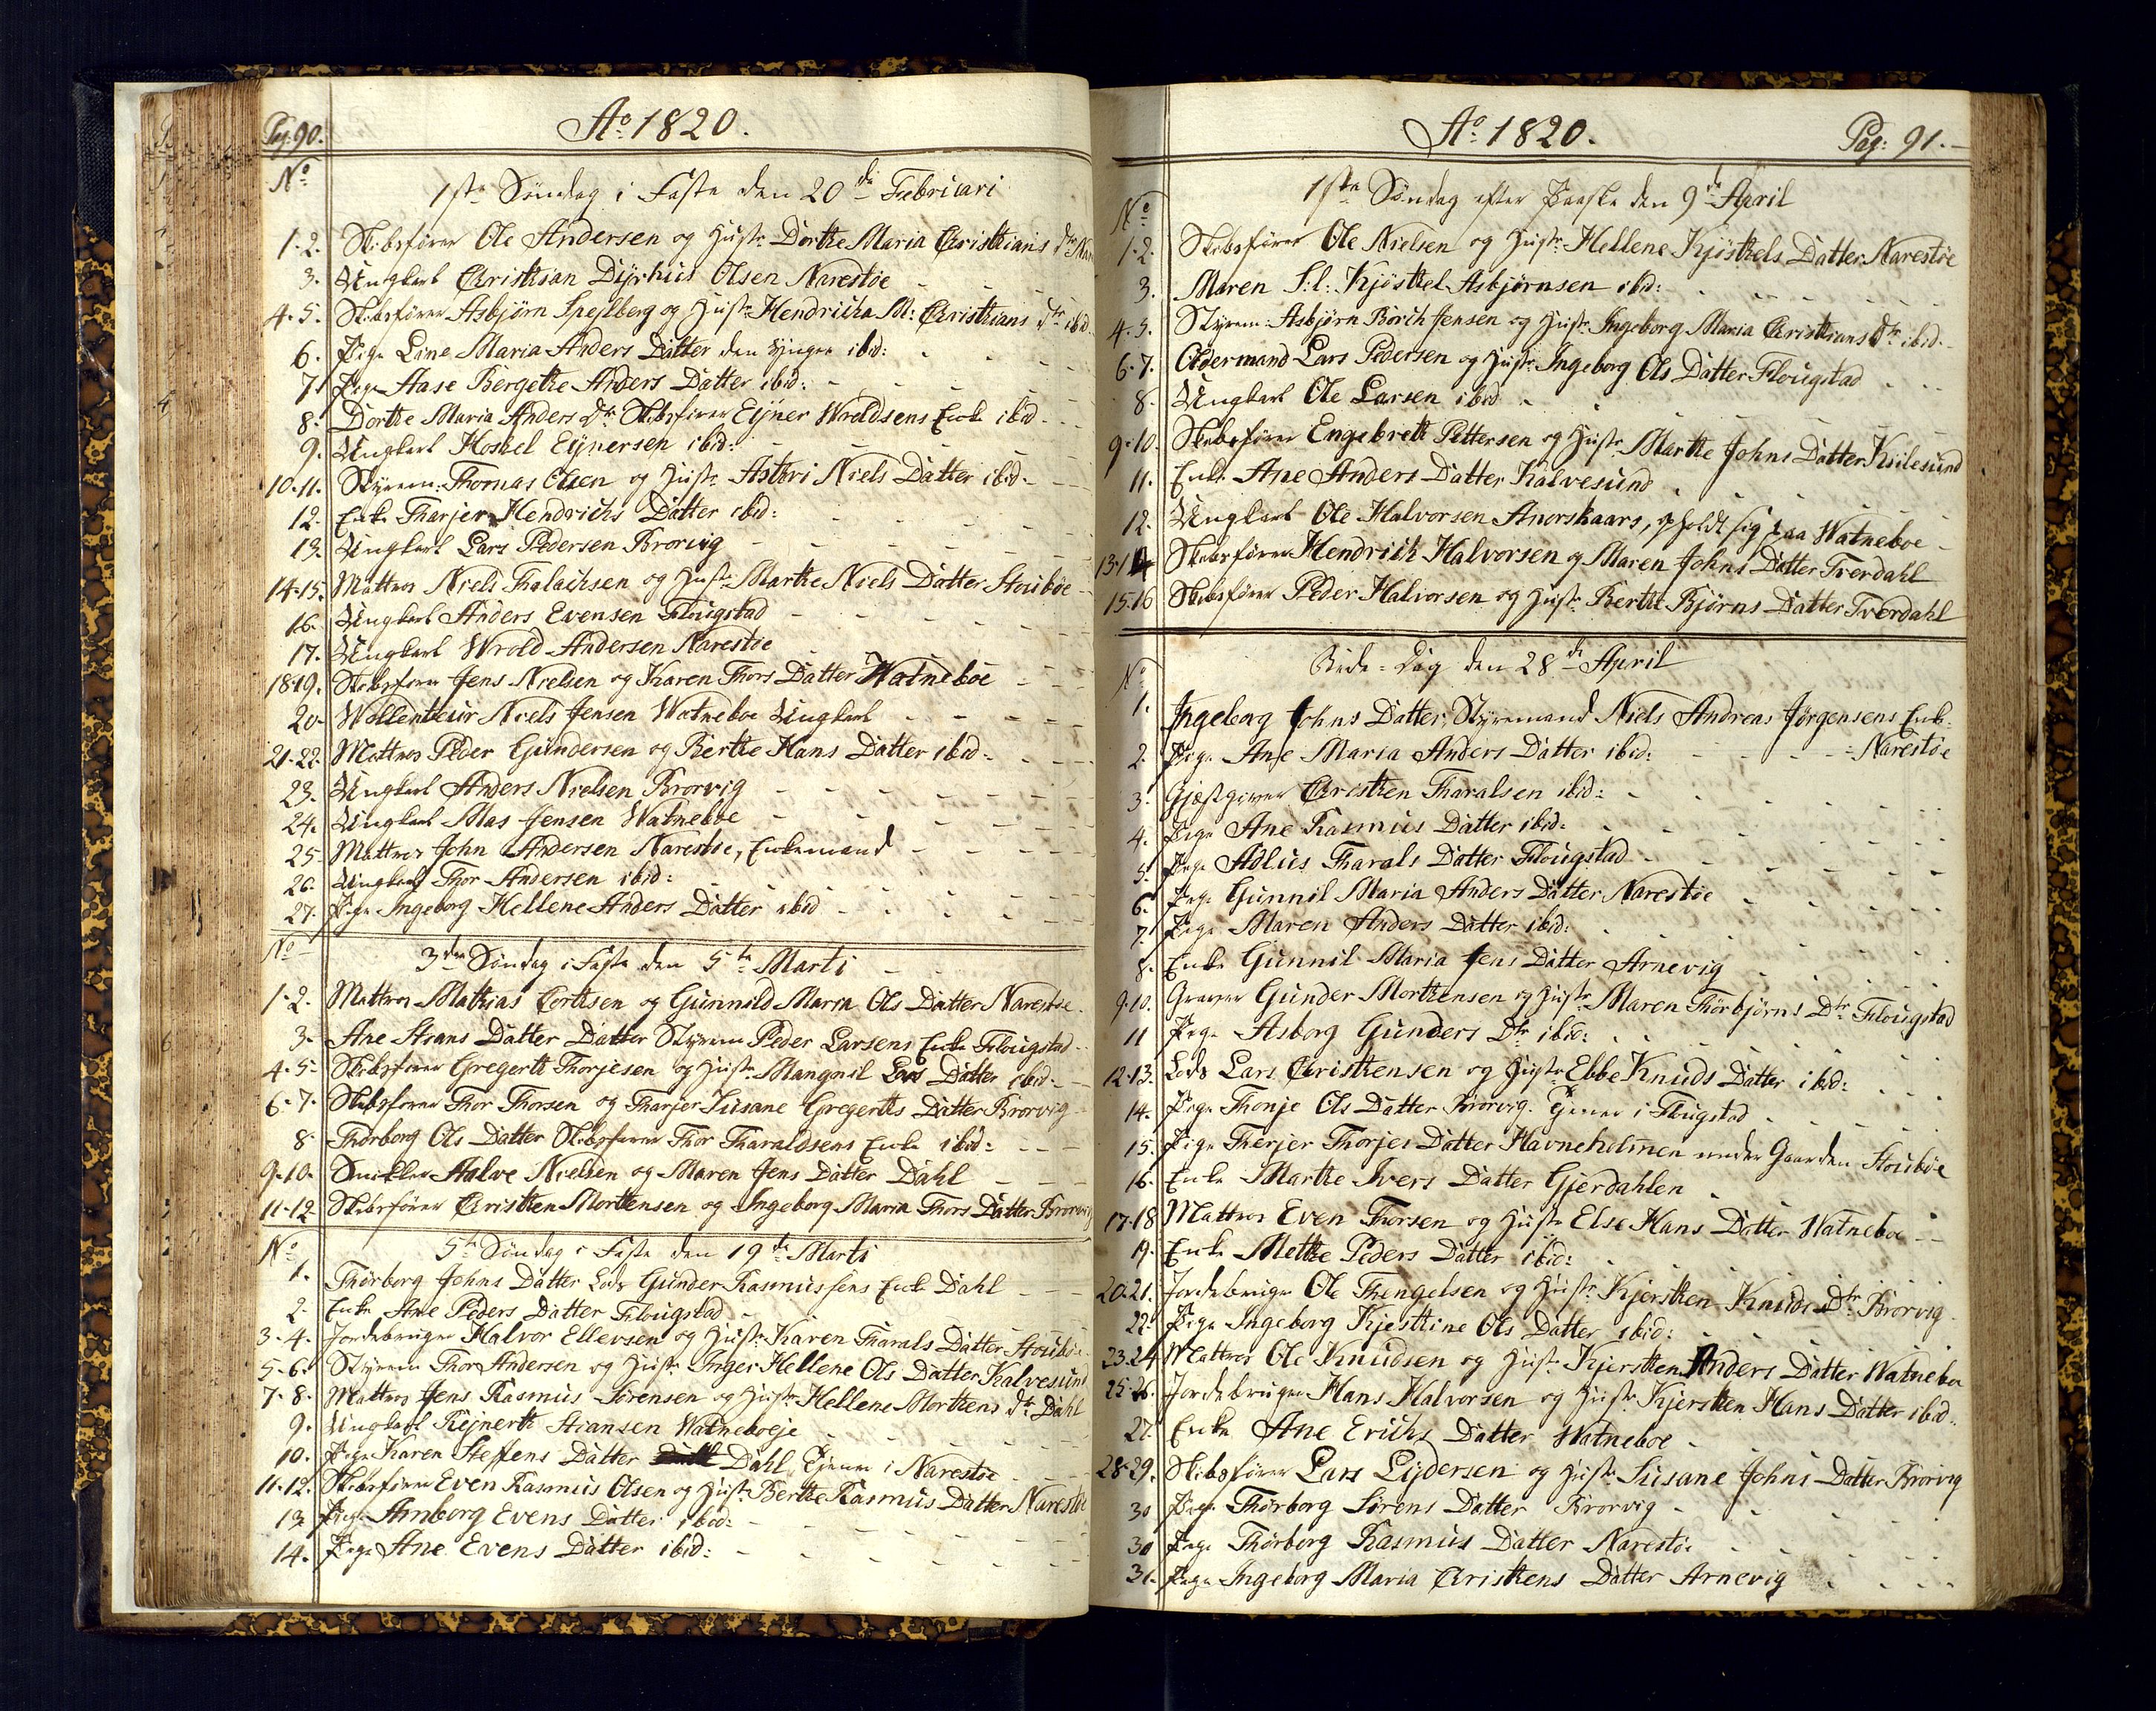 Pag. 90.
Ao 1820.
No
1ste Søndag i Faste den 20de Februari
1-2. Skibsfører Ole Andersen og Hustr: Dorthe Maria Christians dtr Nar
3. Ungkarl Christian Dyrhus Olsen Narestøe
4-5. Skibsfører Asbjørn Spejlberg og Hustr: Hendricha M: Christians dtr ibid
6. Pige Lane Maria Anders Datter den yngre ibid:
7. Pige Aase Bergethe Anders Datter ibid:
8. Dorthe Maria Anders Dtr Skibsfører Ejner Wroldsens Enke ibid
9. Ungkarl Hoskel Ejnersen ibid:
10-11. Styrm: Thomas Olsen og Hustr: Astbri Niels Datter ibid
12. Enke Tharjer Hendrichs Datter ibid:
13. Ungkarl Lars Pedersen Brorvig
14-15. Mattros Niels Thalachsen og Hustr: Marthe Niels Datter Stoubøe
16. Ungkarl Anders Evensen Flougstad
17. Ungkarl Wrold Andersen Narestøe
18-19. Skibsfører Jens Nielsen og Karen Thors Datter Watneboe
20. Wollenteur Niels Jensen Watneboe Ungkarl
21-22. Mattros Peder Gundersen og Berthe Hans Datter ibid:
23. Ungkarl Anders Nielsen Brorvig
24. Ungkarl Mas Jensen Watneboe
25. Mattros John Andersen Narestøe, Enkemand
26. Ungkarl Thor Andersen ibid:
27. Pige Ingeborg Hellene Anders Datter ibid
No
3die Søndag i Faste den 5te Marti
1-2. Mattros Mathias Corthsen og Gunnild Maria Ols Datter Narestøe
3. Ane Stians Datter Datter Styrm Peder Larsens Enke Flougstad
4-5. Skibsfører Gregerth Thorjesen og Hustr: Mangnil Lars Datter ibid
6-7. Skibsfører Thor Thorsen og Tharjer Susane Gregerths Datter Brorvig
8. Thorborg Ols Datter Skibsfører Thor Tharaldsens Enke ibid:
9-10. Snidker Aalve Nielsen og Maren Jens Datter Dahl
11-12. Skibsfører Christhen Morthensen og Ingeborg Maria Thors Datter Brorvig
No
5te Søndag i Faste den 19de Marti
1. Thørborg Johns Datter Lods Gunder Rasmussens Enke Dahl
2. Enke Ane Peders Datter Flougstad
3-4. Jordebruger Halvor Ellevsen og Hustr: Karen Tharals Datter Stoubøe
5-6. Styrm Thor Andersen og Hustr: Inger Hellene Ols Datter Kalvesund
7-8. Mattros Jens Rasmus Sørensen og Hustr: Hellene Morthens dtr: Dahl
9. Ungkarl Rejnerth Stiansen Watneboeje
10. Pige Karen Steffens Datter Dahl, Tjener i Narestøe
11-12. Skibsfører Even Rasmus Olsen og Hustr: Berthe Rasmus Datter Narestøe
13. Pige Amborg Evens Datter ibid:
14. Pige Ane Evens Datter ibid:
Ao 1820.
Pag: 91.
1ste Søndag efter Paaske den 9de April
No
1-2. Skibsfører Ole Nielsen og Hustr: Hellene Kjøsthels Datter Narestøe
3. Maren S:l: Kjøsthel Asbjørnsen ibid:
4-5. Styrm: Asbjørn Borch Jensen og Hustr: Ingeborg Maria Christians Dtr ibid.
6-7. Oldermand Lars Pedersen og Hustr: Ingeborg Ols Datter Flougstad
8. Ungkarl Ole Larsen ibid
9-10. Skibsfører Engebreth Pettersen og Hustr: Marthe Johns Datter Kiilesund
11. Enke Ane Anders Datter Kalvesund
12. Ungkarl Ole Halvorsen Anorskaars, opholdt sig paa Watneboe
13-14. Skibsfører Hendrich Halvorsen og Maren Johns Datter Tverdahl
15-16. Skibsfører Peder Halvorsen og Hustr: Berthe Bjørns Datter Tverdahl
No
Bede-Dag den 28de April
1. Ingeborg Johns Datter, Styremand Niels Andreas Jørgensens Enke
Narestøe
2. Pige Ane Maria Anders Datter ibid:
3. Gjæstgiver Christhen Tharalsen ibid:
4. Pige Ane Rasmus Datter ibid:
5. Pige Adlus Tharals Datter Flougstad
6. Pige Gunnil Maria Anders Datter Narestøe
7. Pige Maren Anders Datter ibid:
8. Enke Gunnil Maria Jens Datter Arnevig
9-10. Graver Gunder Morthensen og Hustr: Maren Thorbjørns Dtr Flougstad
11 Pige Asborg Gunders Dtr ibid:
12-13. Lods Lars Christhensen og Hustr: Ebbe Knuds Datter ibid:
14. Pige Thonje Ols Datter Brorvig. Tjener i Flougstad
15. Pige Therjer Thorjes Datter Havneholmen under Gaarden Stoubøe
16. Enke Marthe Ivers Datter Gjerdahlen
17-18 Mattros Even Thorsen og Hustr: Else Hans Datter Watneboe
19. Enke Methe Peders Datter ibid:
20-21. Jordebruger Ole Thengelsen og Hustr: Kjersthen Knuds Dtr: Brorvig
22. Pige Ingeborg Kjesthine Ols Datter ibid:
23-24 Mattros Ole Knudsen og Hustr: Kjersthen Anders Datter Watneboe
25-26. Jordebruger Hans Halvorsen og Hustr: Kjersthen Hans Datter ibid:
27. Enke Ane Erichs Datter Watneboe
28-29. Skibsfører Lars Lydersen og Hustr: Susane Johns Datter Brorvig
30 Pige Thørborg Sørens Datter Brorvig
30 Pige Thørborg Rasmus Datter Narestøe
31. Pige Ingeborg Maria Christhens Datter Arnevig